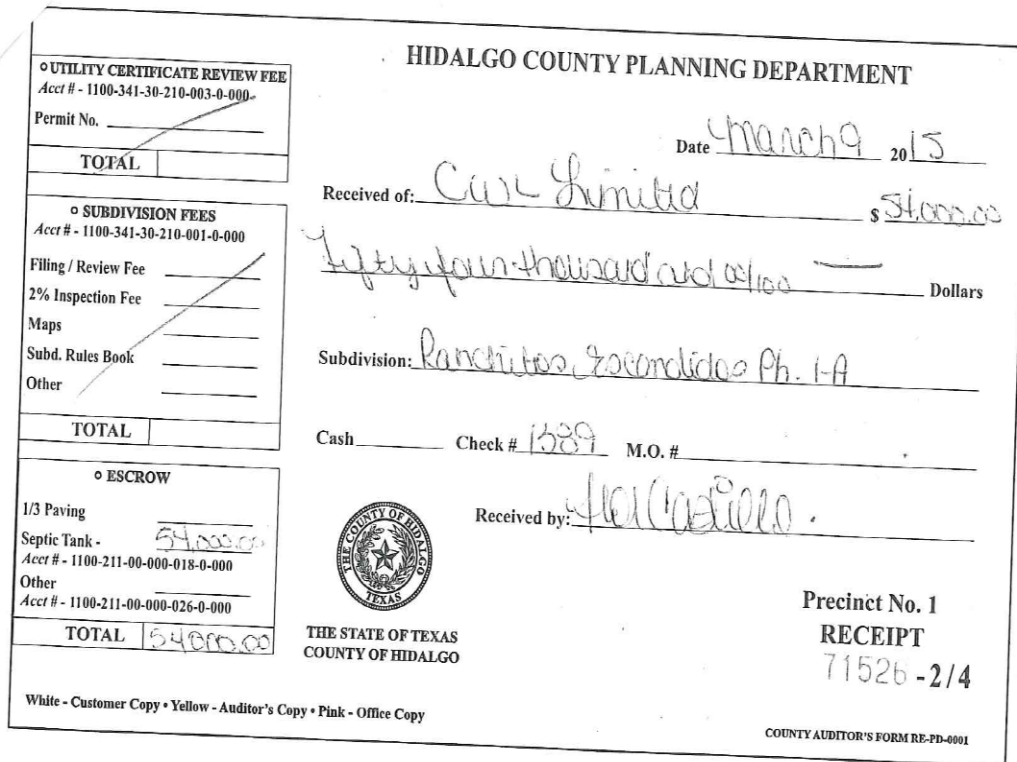 HIDALGO COUNTY PLANNING DEPARTMENT
o UTILITY CERTIFICATE REVIEW FEE
Acct # - 1100-341-30-210-003-0-000-
Permit No.
TOTAL
o SUBDIVISION FEES
Acct # - 1100-341-30-210-001-0-000
Filing / Review Fee
2% Inspection Fee
Maps
Subd. Rules Book
Other
TOTAL
o ESCROW
1/3 Paving
Septic Tank - 54,000.00
Acct # - 1100-211-00-000-018-0-000
Other
Acct # - 1100-211-00-000-026-0-000
TOTAL 54000.00
Date March 9 2015
Received of: CWL Limited $ 54,000.00
Fifty four thousand and 00/100 Dollars
Subdivision: Ranchitos Escondidos Ph. 1-A
Cash Check # 1389 M.O. #
Received by: Flor Castillo
THE COUNTY OF HIDALGO
TEXAS
THE STATE OF TEXAS
COUNTY OF HIDALGO
Precinct No. 1
RECEIPT
71526 -2/4
White - Customer Copy • Yellow - Auditor's Copy • Pink - Office Copy
COUNTY AUDITOR'S FORM RE-PD-0001